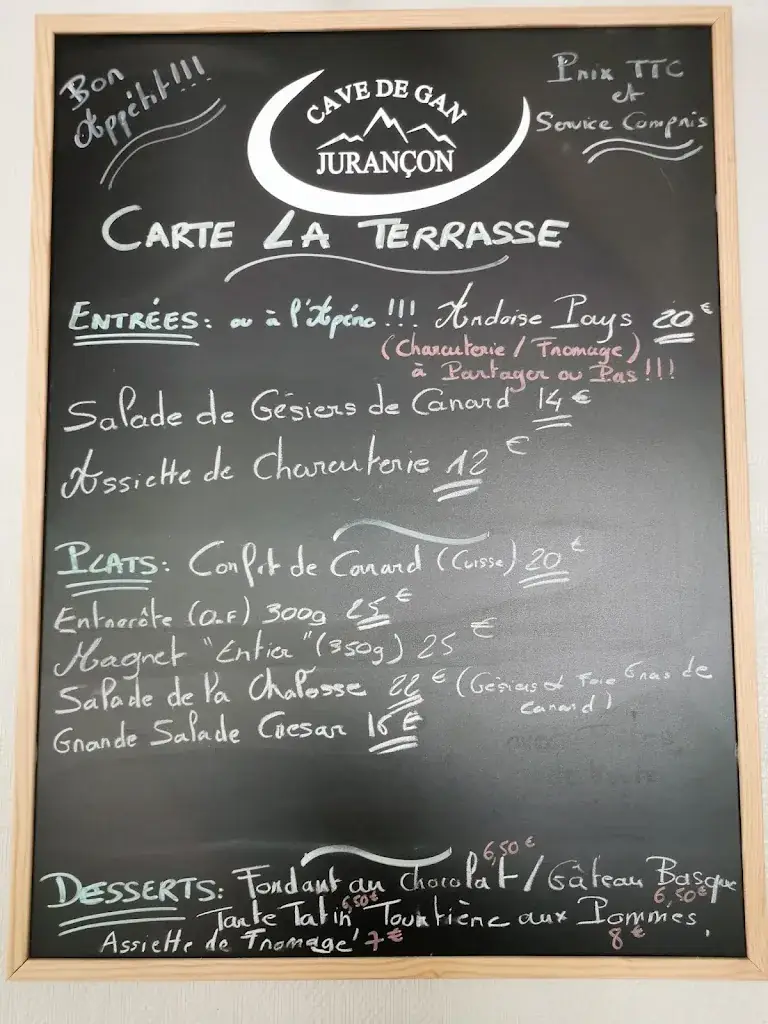 Bon
Appétit !!!
CAVE DE GAN
JURANÇON
Prix TTC
et
Service Compris
CARTE LA TERRASSE
ENTRÉES : ou à l'Apéro !!! Ardoise Pays 20 €
(Charcuterie / Fromage)
à Partager ou Pas !!!
Salade de Gésiers de Canard 14 €
Assiette de Charcuterie 12 €
PLATS : Confit de Canard (Cuisse) 20 €
Entrecôte (O.F) 300g 25 €
Magret "Entier" (350g) 25 €
Salade de la Chalosse 22 € (Gésiers et Foie Gras de
Canard)
Grande Salade Caesar 16 €
DESSERTS : Fondant au Chocolat 6,50 € / Gâteau Basque 6,50 €
Tarte Tatin 6,50 € Tourtière aux Pommes 8 €
Assiette de Fromage 7 €